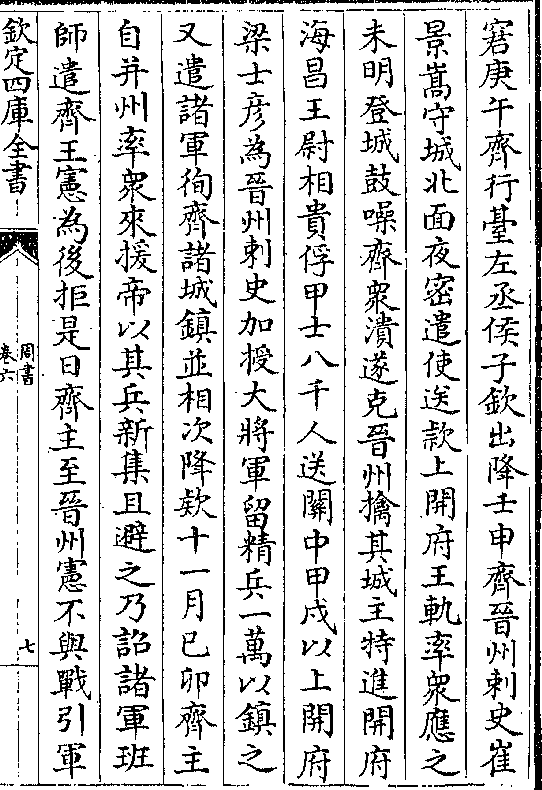 窘庚午齊行臺左丞侯子欽出降壬申齊晉州刺史崔
景嵩守城北面夜密遣使送款上開府王軌率衆應之
未明登城鼓噪齊衆潰遂克晉州擒其城主特進開府
海昌王尉相貴俘甲士八千人送關中甲戌以上開府
梁士彦為晉州刺史加授大將軍留精兵一萬以鎮之
又遣諸軍徇齊諸城鎮並相次降欵十一月己卯齊主
自并州率衆來援帝以其兵新集且避之乃詔諸軍班
師遣齊王憲為後拒是日齊主至晉州憲不與戰引軍
欽定四庫全書
周書
卷六
七